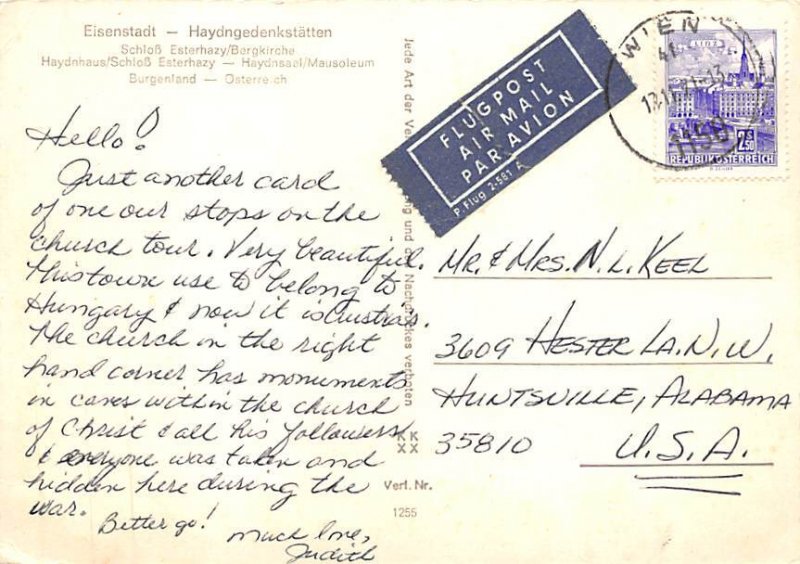 Eisenstadt — Haydngedenkstätten
Schloß Esterhazy/Bergkirche
Haydnhaus/Schloß Esterhazy — Haydnsaal/Mausoleum
Burgenland — Österreich
Hello!
Just another card
of one our stops on the
church tour. Very beautiful.
This town use to belong to
Hungary & now it is Austria's.
The church in the right
hand corner has monuments
in caves within the church
of Christ & all his followers
& everyone was taken and
hidden here during the
war.
Better go!
Much love,
Judith
Jede Art der und Nachdruckes verboten
Verl. Nr.
1255
FLUGPOST
AIR MAIL
PAR AVION
P. Flug 2-581 A
WIEN
1150
LINZ
2S50
REPUBLIK ÖSTERREICH
Mr. & Mrs. N. L. Keel
3609 Hester La. N.W.
Huntsville, Alabama
35810 U.S.A.